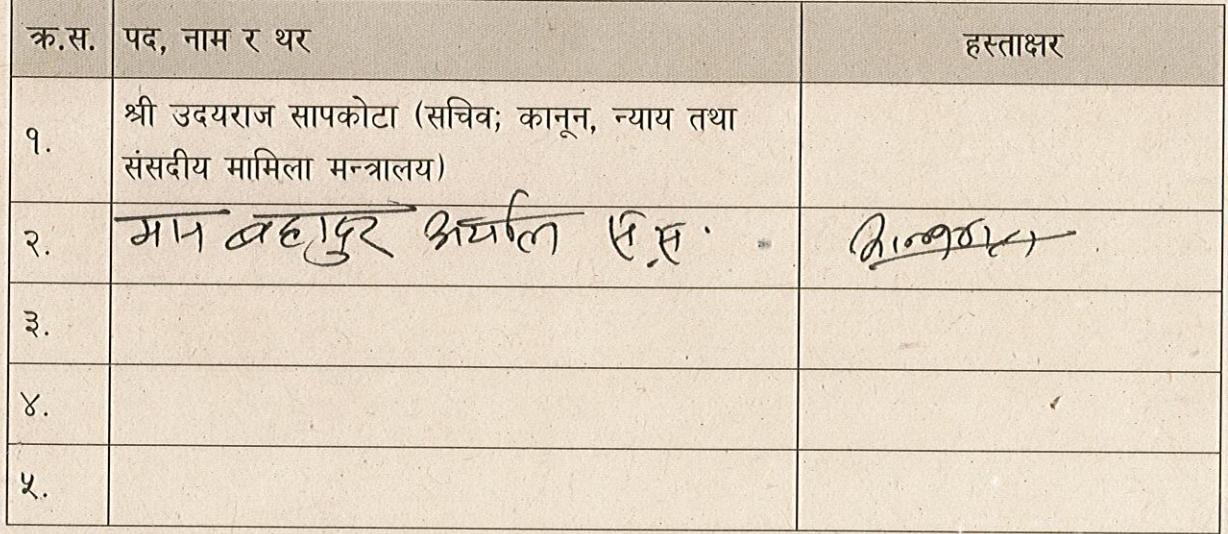 क्र.स. पद, नाम र थर हस्ताक्षर
१. श्री उदयराज सापकोटा (सचिव; कानून, न्याय तथा
संसदीय मामिला मन्त्रालय)
२. मान बहादुर अर्याल स.स.
३.
४.
५.